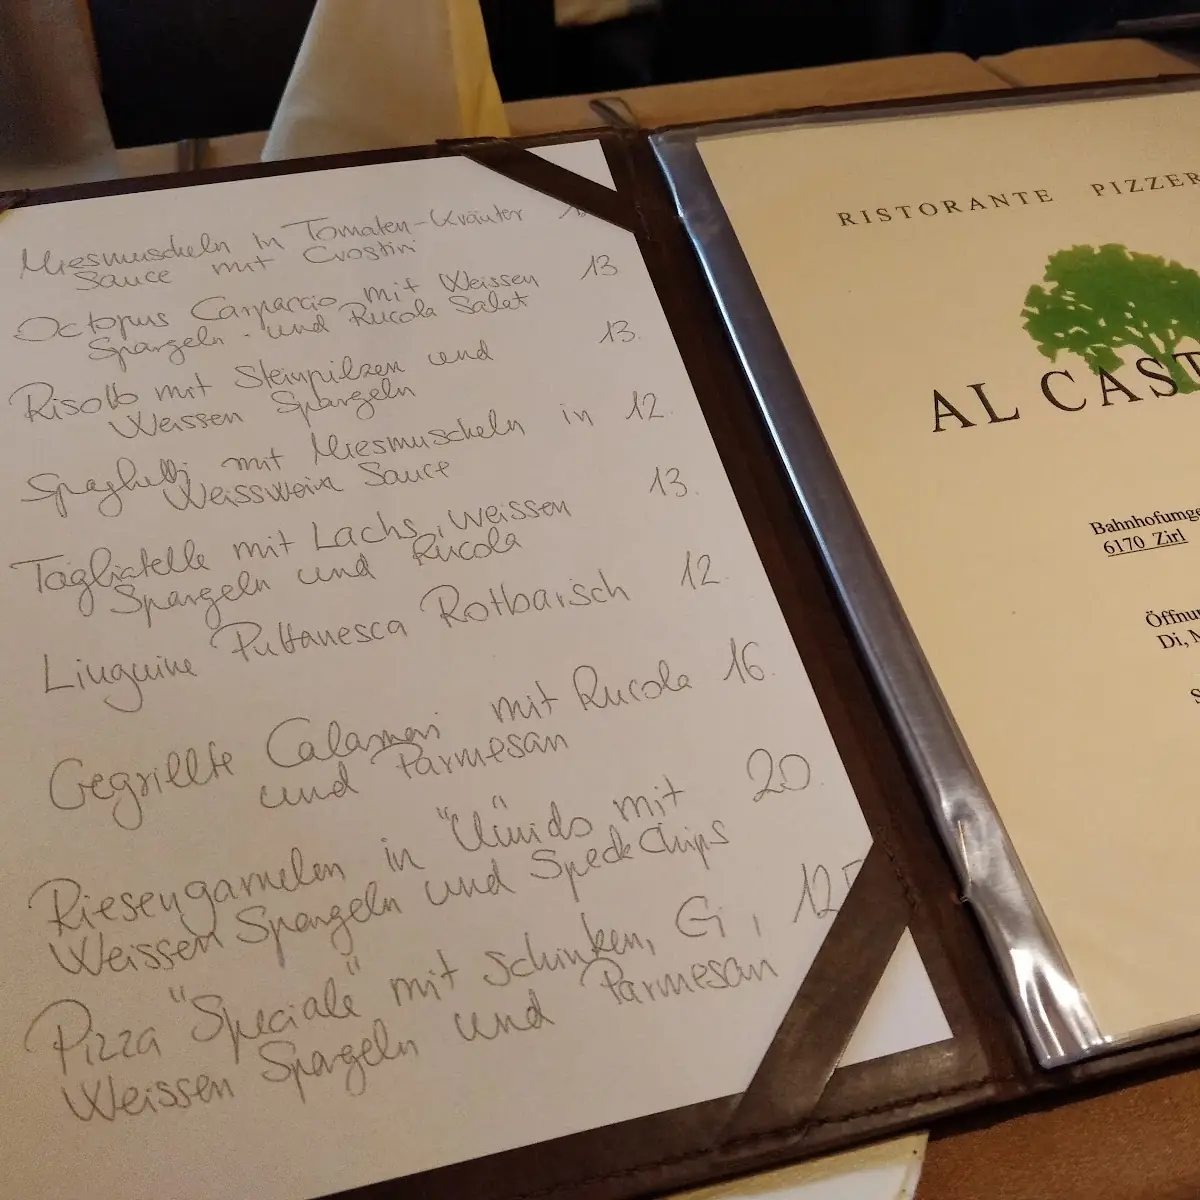 Miesmuscheln in Tomaten-Kräuter
Sauce mit Crostini
Octopus Carpaccio mit Weissen 13
Spargeln - und Rucola Salat
Risotto mit Steinpilzen und 13.
Weissen Spargeln
Spaghetti mit Miesmuscheln in 12.
Weisswein Sauce
Tagliatelle mit Lachs, weissen 13.
Spargeln und Rucola
Linguine Puttanesca Rotbarsch 12.
Gegrillte Calamari mit Rucola 16.
und Parmesan
Riesengarnelen in "Umido" mit 20.
Weissen Spargeln und Speck Chips
Pizza "Speciale" mit Schinken, Ei, 12
Weissen Spargeln und Parmesan
RISTORANTE PIZZER
AL CAST
Bahnhofumge
6170 Zirl
Öffnu
Di,